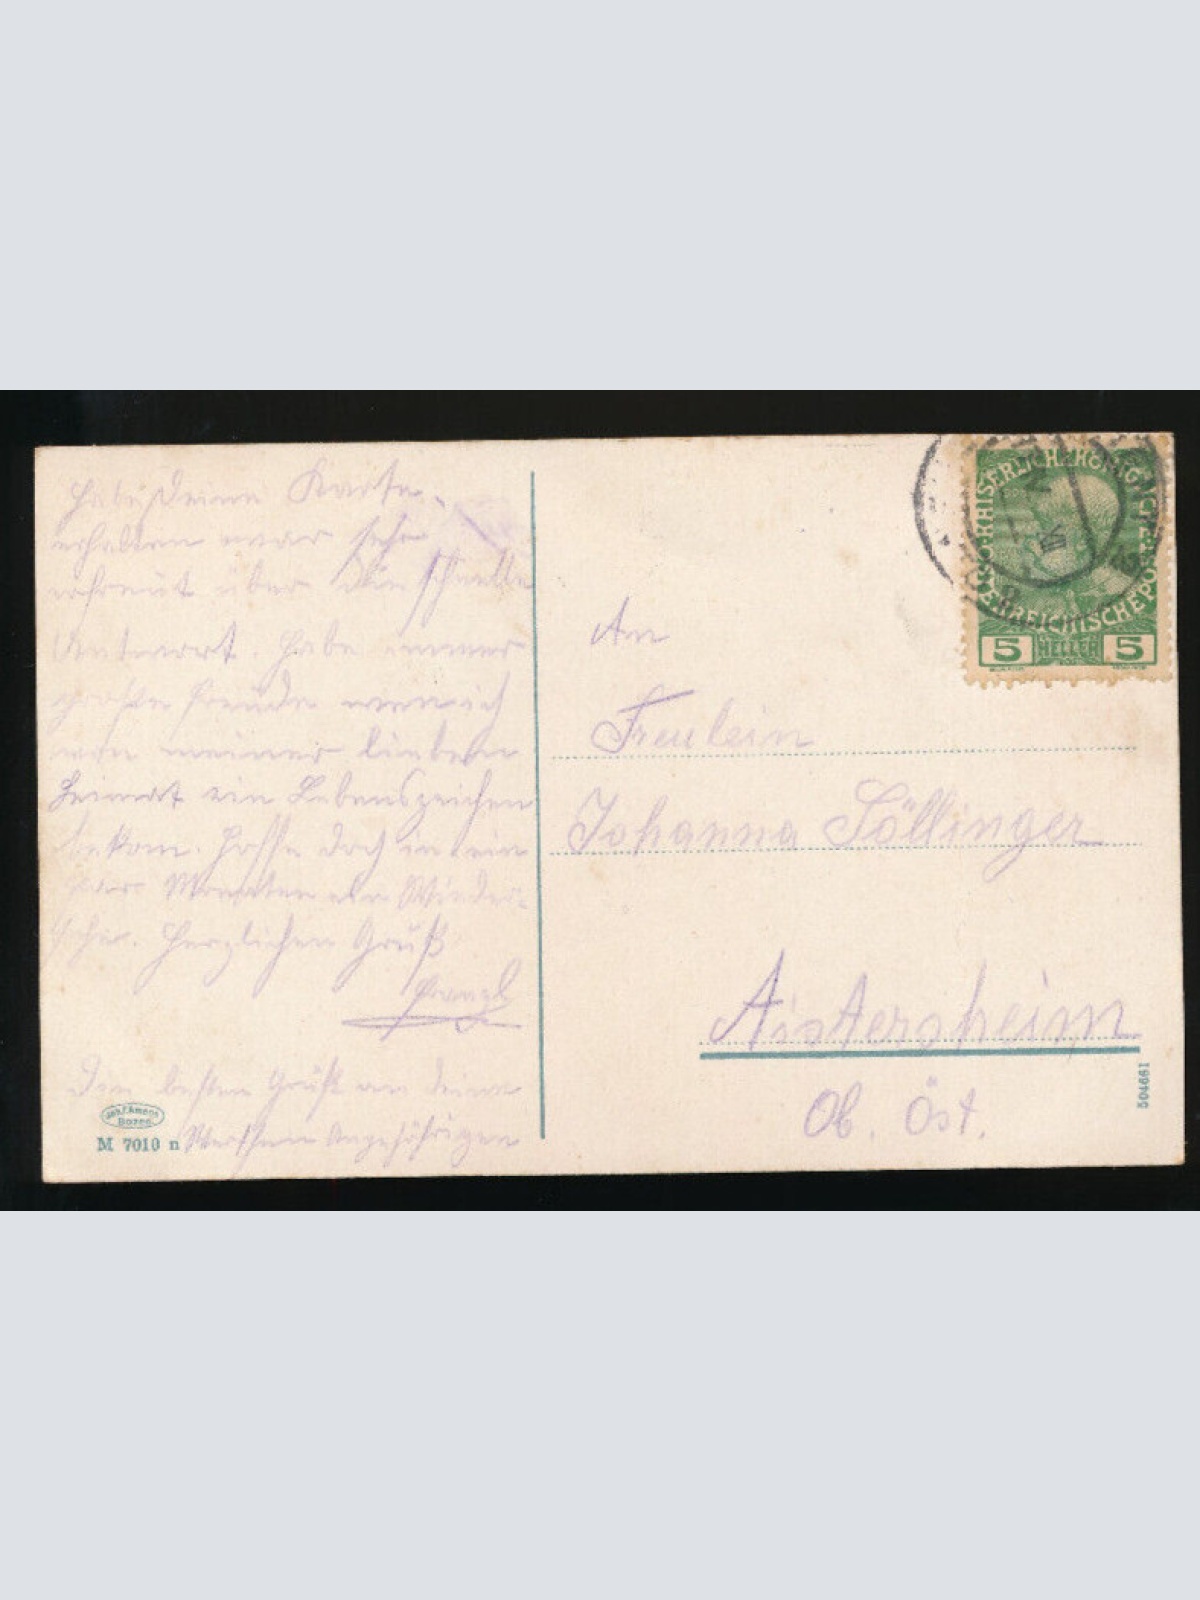 Habe Deine Karte
erhalten war sehr
erfreut über die schnelle
Antwort. Habe immer
große Freude wenn ich
von meiner lieben
Heimat ein Lebenszeichen
bekom. Hoffe doch in ein
paar Monaten ein Wieder-
sehn. Herzlichen Gruß
Franzl
Den besten Gruß an deine
Werthen Angehöhrigen
Joh. F. Amonn
Bozen
M 7010 n
KAISERLICH KÖNIGL
ÖSTERREICHISCHE POST
5 HELLER 5
VII
An
Freulein
Johanna Söllinger
Aistersheim
Ob. Öst.
504661